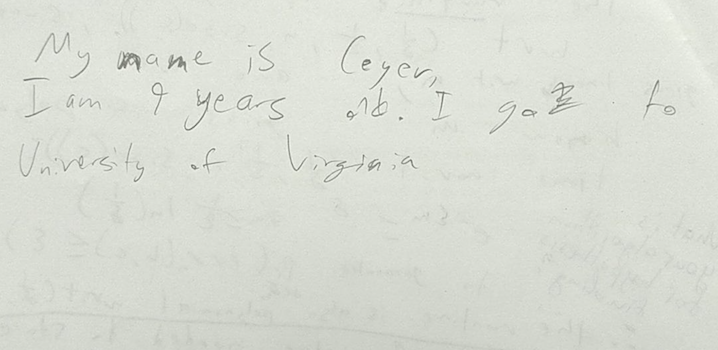 My name is Ceyer,
I am 9 years old. I go to
University of Virginia